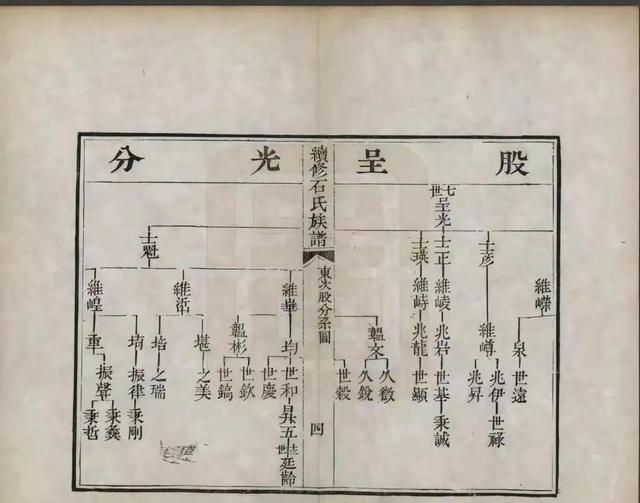 股呈光分
七世
呈光
士彥
士正
士瑛
士魁
維嶸
維嶟
維崚
維峙
維華
維沰
維崲
泉
世遠
兆伊
世祿
兆昇
兆岩
世基
秉誠
兆龍
世顯
韞文
久徵
久銳
世毅
續修石氏族譜
東次股分系圖
四
均
世和
昇五
廷齡
世慶
韞彬
世欽
世鎬
堪
之美
培
之瑞
堉
振律
秉剛
重
振聲
秉彝
秉哲